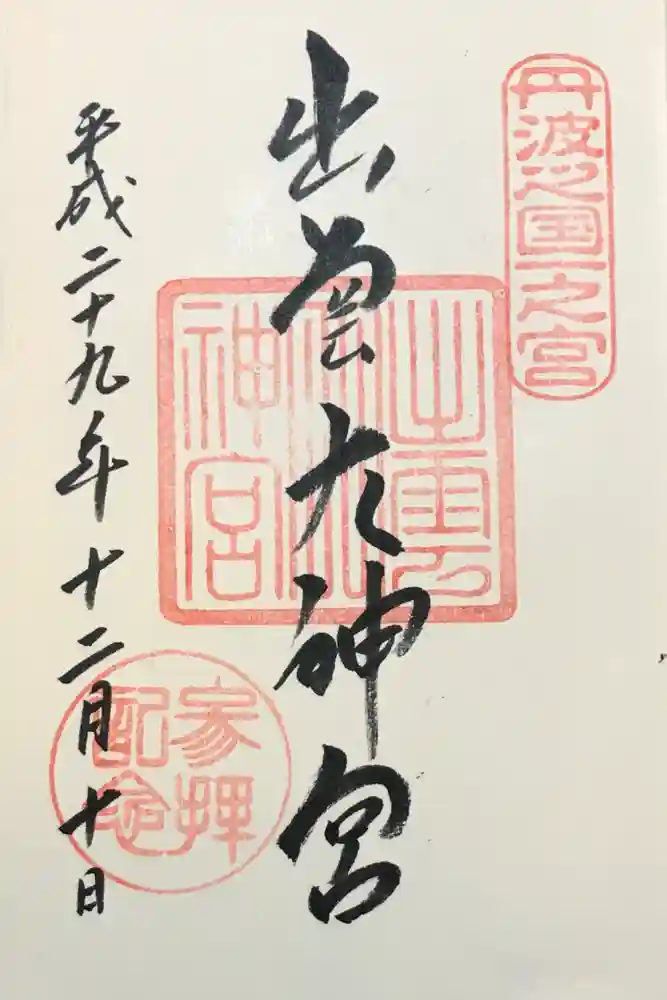 丹波之国一之宮
出雲大神宮
出雲大神宮
平成二十九年十二月十日
参拝記念